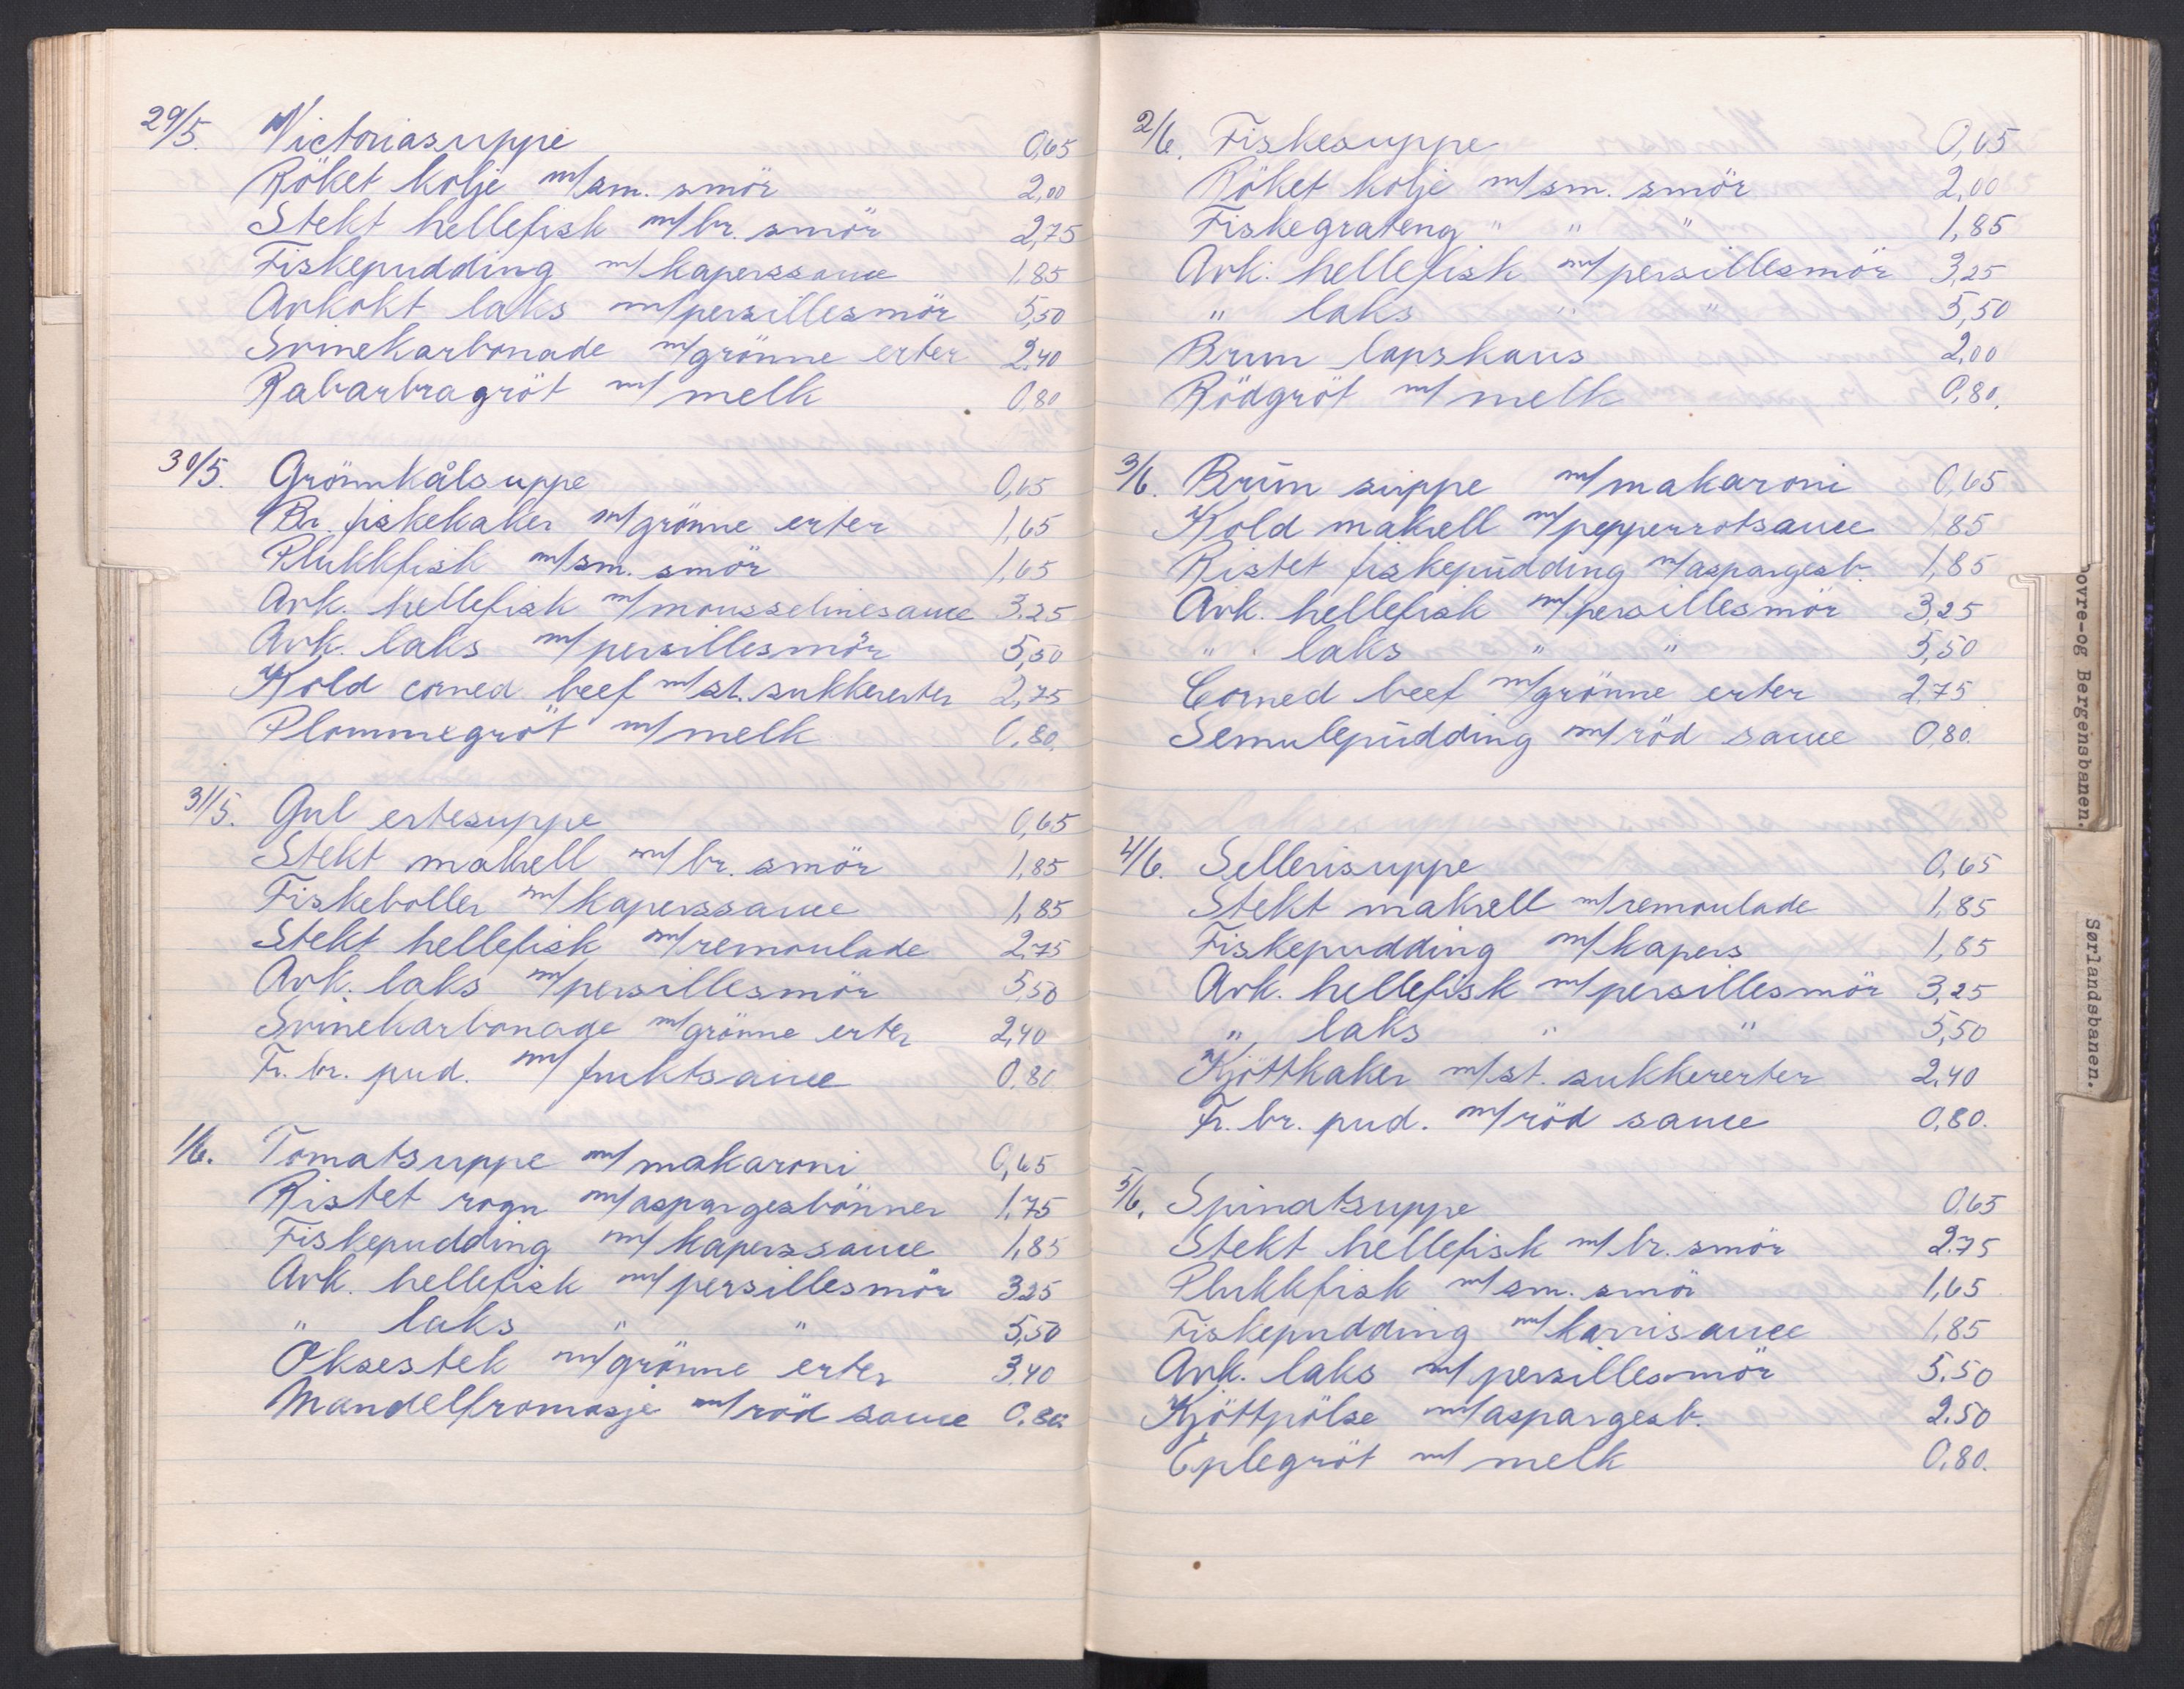 29/5. Victoriasuppe 0,65
Röket kolje m/sm. smör 2,00
Stekt hellefisk m/br. smör 2,75
Fiskepudding m/kaperssauce 1,85
Avkokt laks m/persillesmör 5,50
Svinekarbonade m/grönne erter 2,40
Rabarbragröt m/melk 0,80
30/5. Grönnkålsuppe 0,65
Br. fiskekaker m/grönne erter 1,65
Plukkfisk m/sm. smör 1,65
Avk. hellefisk m/mousselinesauce 3.25
Avk. laks m/persillesmör 5,50
Kold corned beef m/st. sukkererter 2,75
Plommegröt m/melk 0.80.
31/5. Gul ertesuppe 0,65
Stekt makrell m/br. smör 1,85
Fiskeboller m/kaperssauce 1,85
Stekt hellefisk m/remoulade 2,75
Avk. laks m/persillesmör 5,50
Svinekarbonade m/grönne erter 2,40
Fr. br. pud. m/fruktsauce 0.80
1/6. Tomatsuppe m/makaroni 0,65
Ristet rogn m/aspargesbönner 1,75
Fiskepudding m/kaperssauce 1,85
Avk. hellefisk m/persillesmör 3.25
" laks " " 5,50
Oksestek m/grönne erter 3.40
Mandelfromasje m/röd sauce 0.80.
2/6. Fiskesuppe 0,65
Röket kolje m/sm. smör 2,00
Fiskegrateng " " " 1,85
Avk. hellefisk m/persillesmör 3,25
" laks " " 5,50
Brun lapskaus 2,00
Rödgröt m/melk 0,80.
3/6. Brun suppe m/makaroni 0,65
Kold makrell m/pepperrotsauce 1,85
Ristet fiskepudding m/aspargesb. 1,85
Avk. hellefisk m/persillesmör 3,25
" laks " " 5,50
Corned beef m/grönne erter 2.75
Semulepudding m/röd sauce 0,80.
4/6. Sellerisuppe 0,65
Stekt makrell m/remoulade 1,85
Fiskepudding m/kapers 1,85
Avk. hellefisk m/persillesmör 3,25
" laks " " 5,50
Kjöttkaker m/st. sukkererter 2,40
Fr. br. pud. m/röd sauce 0.80.
5/6. Spinatsuppe 0,65
Stekt hellefisk m/br. smör 2.75
Plukkfisk m/sm. smör 1,65
Fiskepudding m/karrisauce 1,85
Avk. laks m/persillesmör 5.50
Kjöttpölse m/aspargesb. 2.50
Eplegröt m/melk 0.80.
ovre-og Bergensbanen.
Sørlandsbanen.